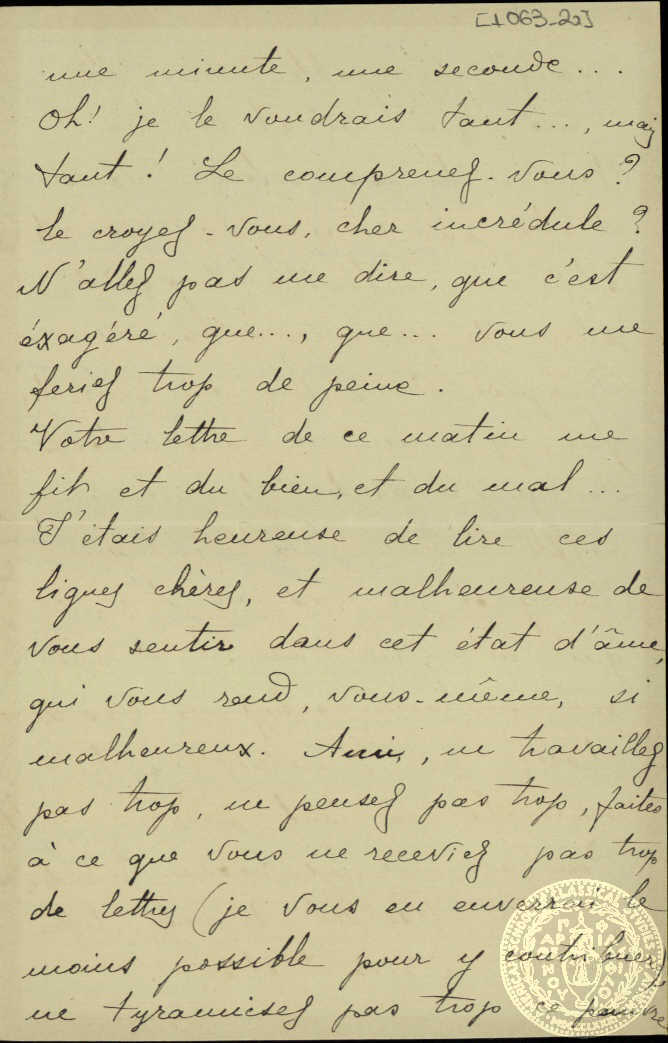 [1063-2a]
une minute, une seconde...
Oh! je le voudrais tant..., mais
tant! Le comprenez-vous?
le croyez-vous, cher incrédule?
N'allez pas me dire, que c'est
éxagéré, que..., que... vous me
feriez trop de peine.
Votre lettre de ce matin me
fit et du bien, et du mal...
J'étais heureuse de lire ces
lignes chères, et malheureuse de
vous sentir dans cet état d'âme,
qui vous rend, vous-même, si
malheureux. Ami, ne travaillez
pas trop, ne pensez pas trop, faites
à ce que vous ne receviez pas trop
de lettres (je vous en enverrai le
moins possible pour y contribuer),
ne tyranisez pas trop ce pauvre